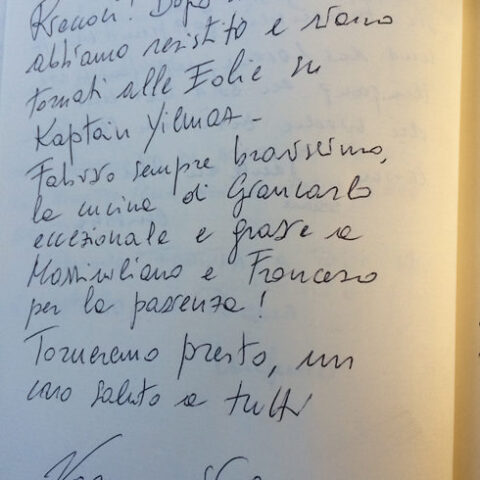 ! Dopo
abbiamo resistito e siamo
tornati alle Eolie su
Kaptain Yilmaz -
Fabrizio sempre bravissimo,
la cucina di Giancarlo
eccezionale e grazie a
Massimiliano e Francesco
per la pazienza!
Torneremo presto, un
caro saluto a tutti